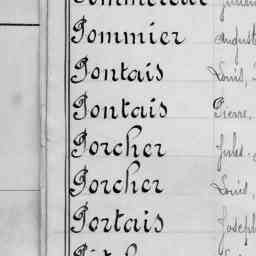 Pommier August
Pontais Louis,
Pontais Pierre,
Porcher Jules
Porcher Louis,
Portais Joseph